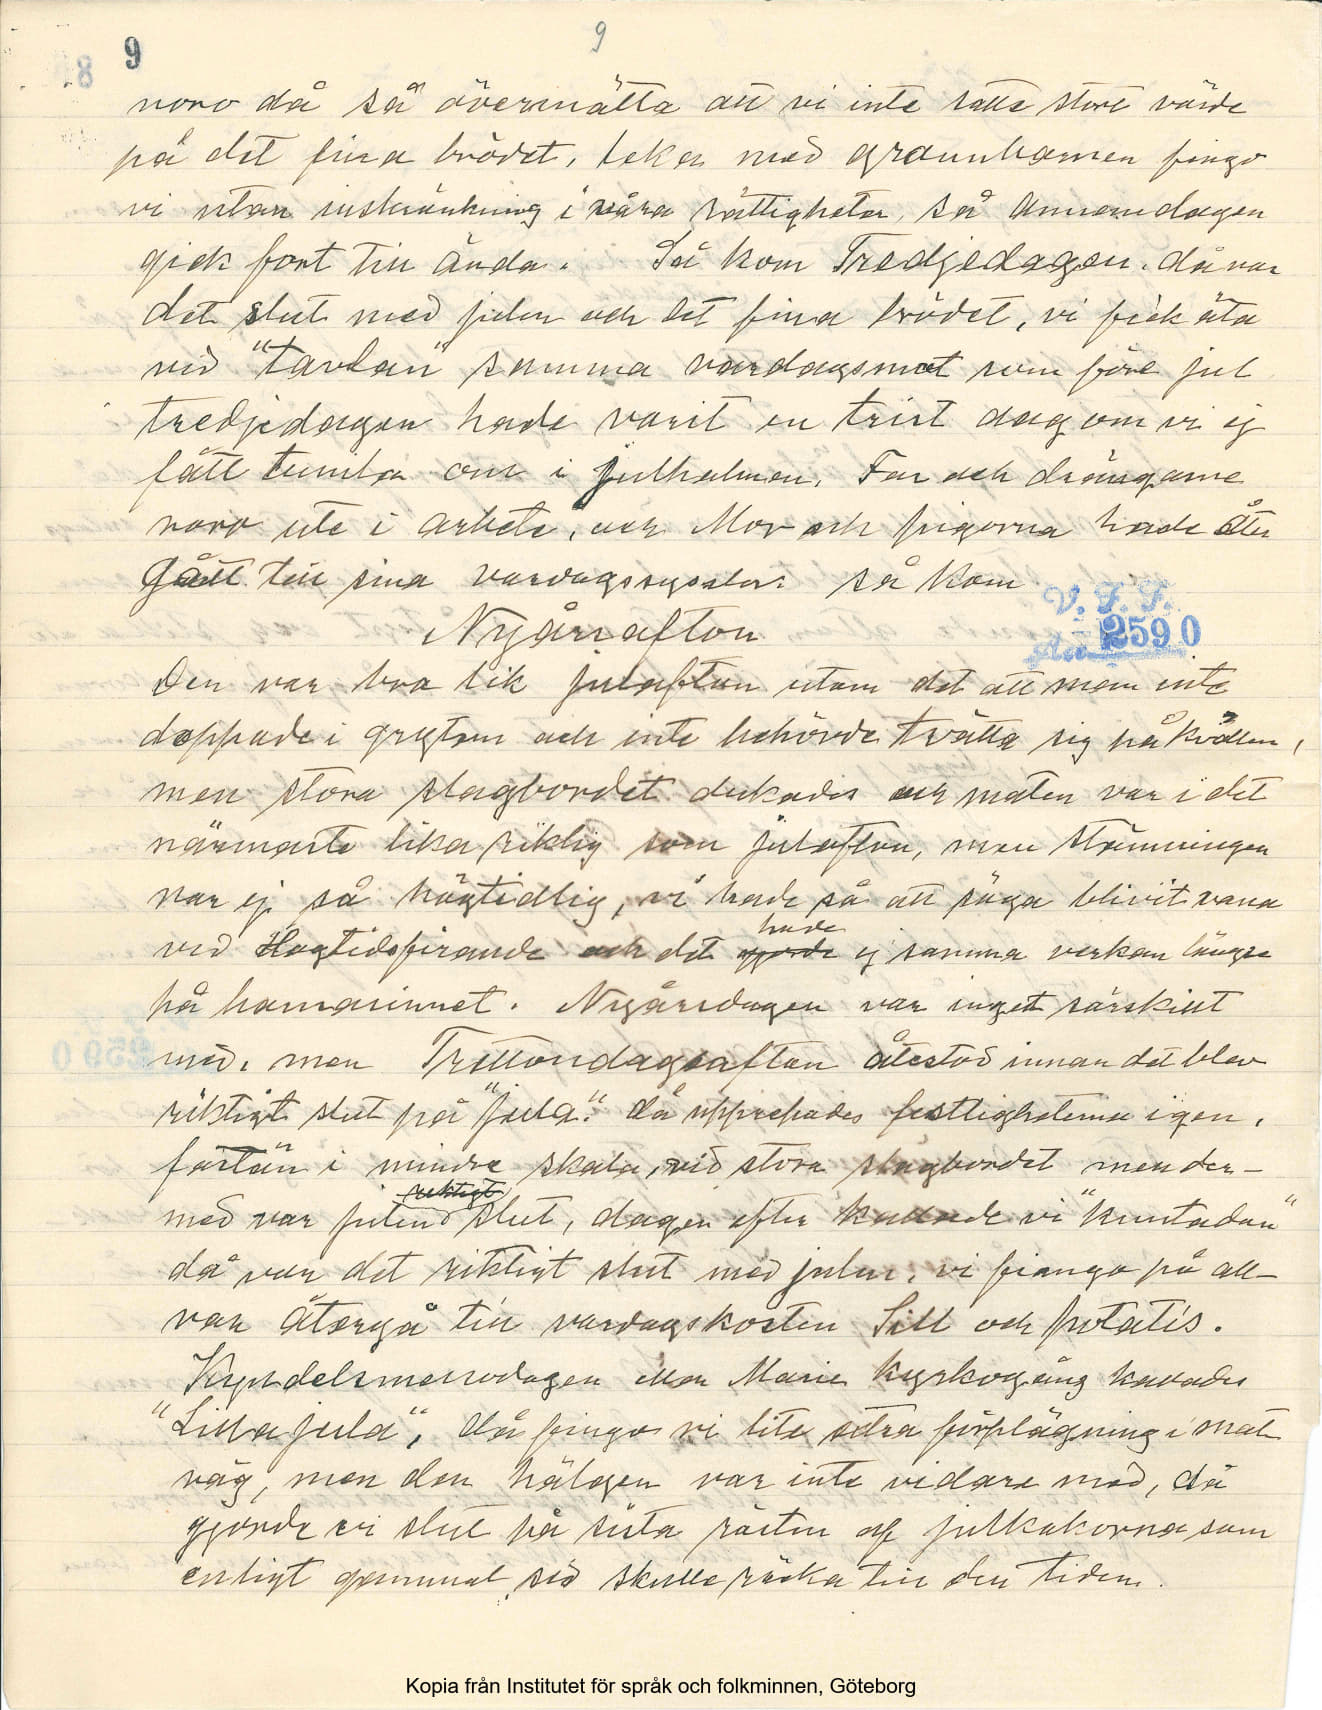 9
9
voro då så övermätta att vi inte satte stort värde
på det fina brödet, leka med grannbarnen fingo
vi utan inskränkning i våra rättigheter, så Annandagen
gick fort till ända. Så kom Tredjedagen. då var
det slut med julen och det fina brödet, vi fick äta
vid "tavlan" samma vardagsmat som före jul
tredjedagen hade varit en trist dag om vi ej
fått tumla om i julhalmen. Far och drängarne
voro ute i arbete, och Mor och pigorna hade åter
gått till sina vardagssysslor. så kom
Nyårsafton
V. F. F.
2590
Den var bra lik julafton utom det att man inte
doppade i grytan och inte behövde tvätta sig på kvällen,
men stora slagbordet dukades och maten var i det
närmaste lika riklig som julafton, men stämningen
var ej så högtidlig, vi hade så att säga blivit vana
vid Högtidsfirande och det gjorde hade ej samma verkan längre
på barnasinnet. Nyårsdagen var inget särskilt
med, men Trettondagsafton återstod innan det blev
riktigt slut på "jula". då upprepades festligheterna igen,
fastän i mindre skala, vid stora slagbordet men der-
med var julen riktigt slut, dagen efter kallade vi "knutadan"
då var det riktigt slut med julen, vi fingo på all-
var återgå till vardagskosten Sill och potatis.
Kyndelsmessodagen eller Marie kyrkogång kallades
"Lilla jula", då fingo vi lite extra förplägning i mat
väg, men den hälgen var inte vidare med, då
gjorde vi slut på sista resten af julkakorna som
enligt gammal sed skulle räcka till den tiden.
Kopia från Institutet för språk och folkminnen, Göteborg